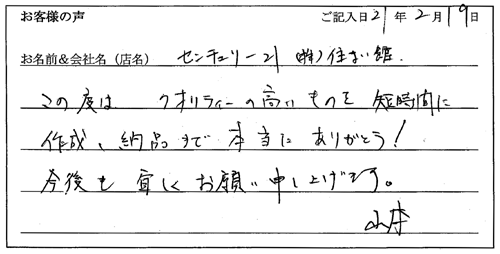 お客様の声 ご記入日 21年 2月 19日
お名前&会社名（店名） センチュリー21 (株)住まい館.
この度は クオリティーの高いものを 短時間に
作成、納品まで 本当に ありがとう!
今後も 宜しく お願い 申し上げます。